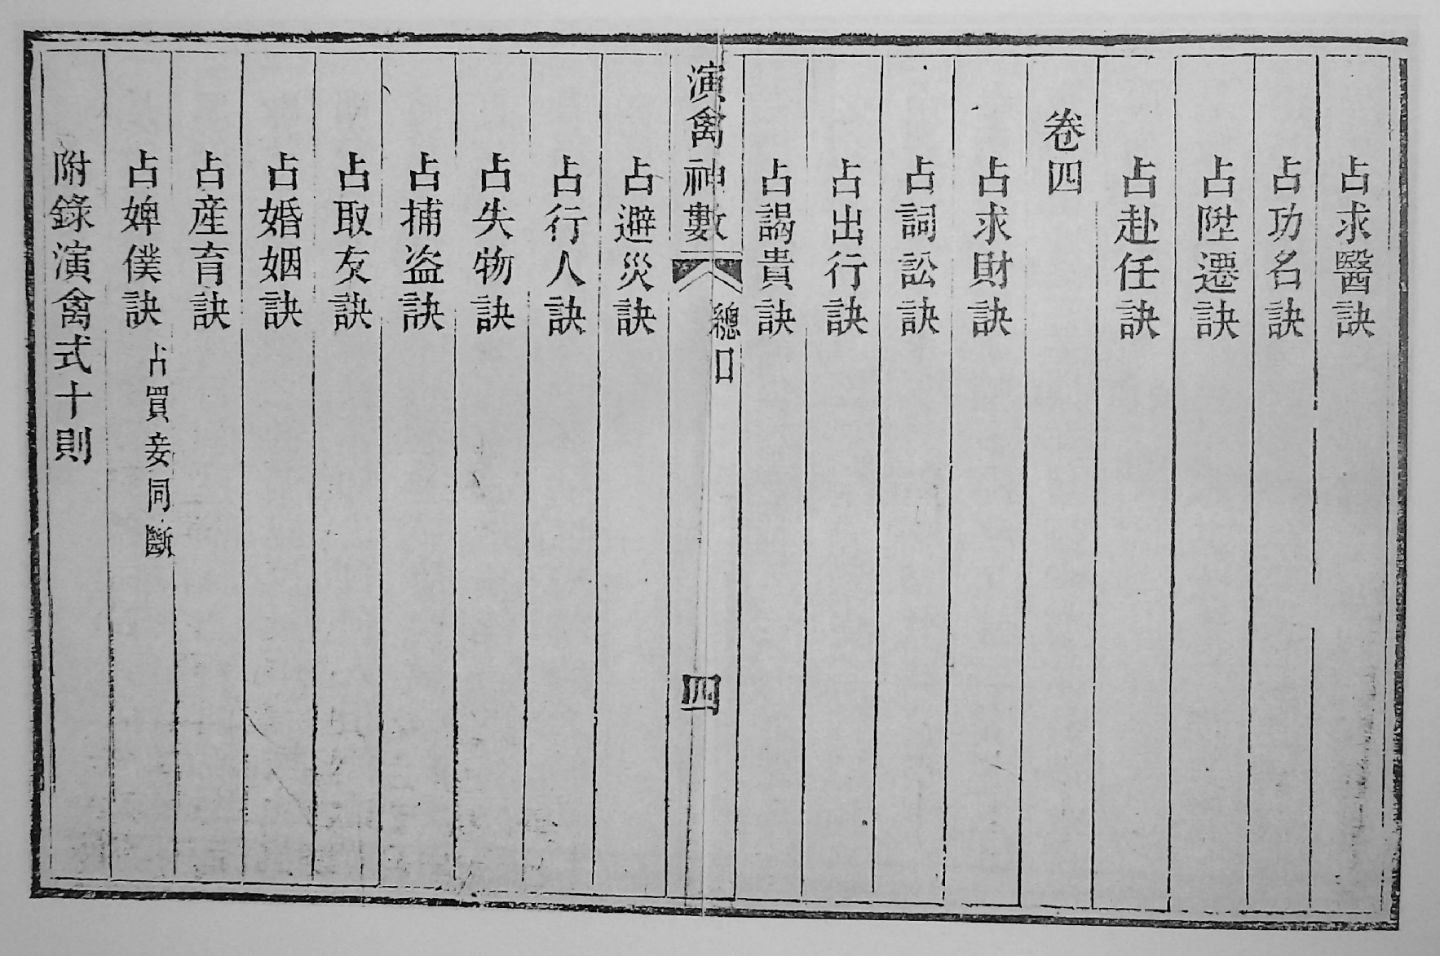 占求醫訣
占功名訣
占陞遷訣
占赴任訣
卷四
占求財訣
占詞訟訣
占出行訣
占謁貴訣
演禽神數
總目
四
占避災訣
占行人訣
占失物訣
占捕盜訣
占取友訣
占婚姻訣
占産育訣
占婢僕訣 占買妾同斷
附錄演禽式十則